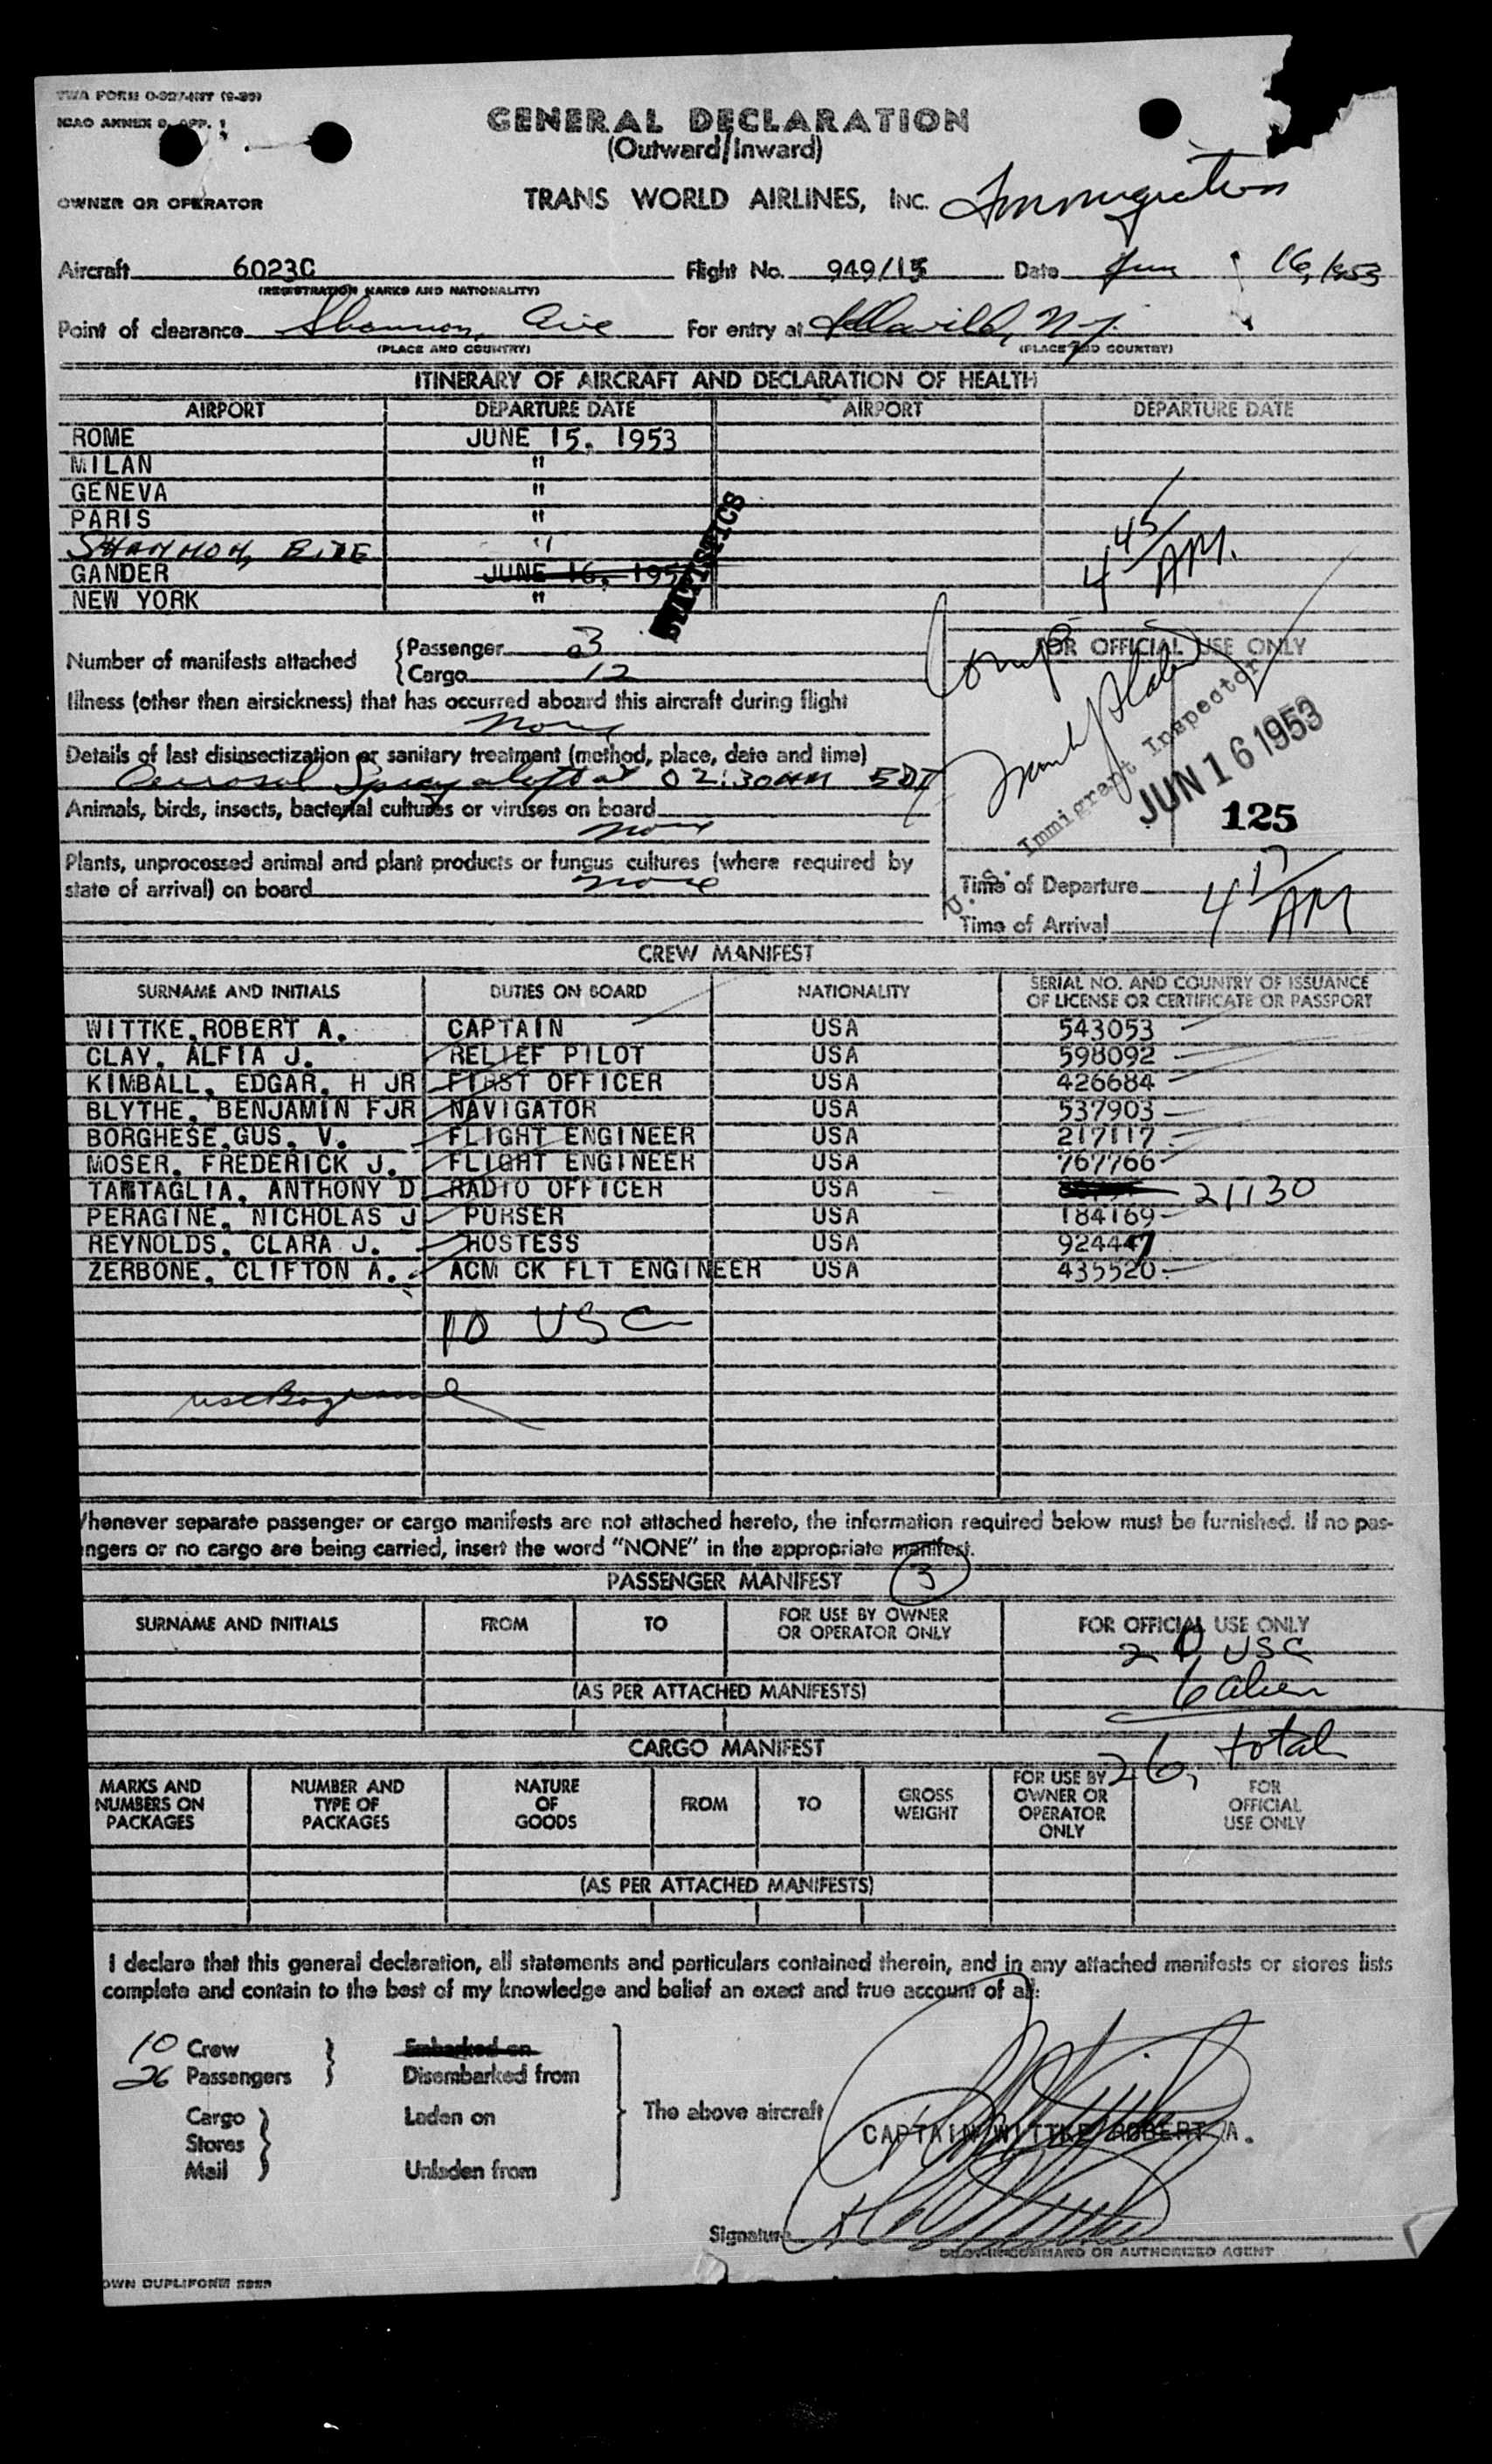 TWA FORM O-327-INT
ICAO ANNEX 9, APP. 1
GENERAL DECLARATION
(Outward/Inward)
OWNER OR OPERATOR
TRANS WORLD AIRLINES, INC.
Immigration
Aircraft 6023C Flight No. 949/15 Date Jun 16, 1953
(REGISTRATION MARKS AND NATIONALITY)
Point of clearance Shannon, Eire For entry at Idlewild, N.Y.
(PLACE AND COUNTRY) (PLACE AND COUNTRY)
ITINERARY OF AIRCRAFT AND DECLARATION OF HEALTH
AIRPORT DEPARTURE DATE AIRPORT DEPARTURE DATE
ROME JUNE 15, 1953
MILAN "
GENEVA "
PARIS "
SHANNON, EIRE "
GANDER JUNE 16, 195
NEW YORK "
STATISTICS
4 45/AM.
Number of manifests attached
Passenger 3
Cargo 12
FOR OFFICIAL USE ONLY
Illness (other than airsickness) that has occurred aboard this aircraft during flight
None
Details of last disinsectization or sanitary treatment (method, place, date and time)
Aerosol Spray aloft at 02:30AM EDT
U. S. Immigrant Inspector
JUN 16 1953
125
Animals, birds, insects, bacterial cultures or viruses on board
none
Plants, unprocessed animal and plant products or fungus cultures (where required by
state of arrival) on board none
Time of Departure
4 17/AM
Time of Arrival
CREW MANIFEST
SURNAME AND INITIALS DUTIES ON BOARD NATIONALITY SERIAL NO. AND COUNTRY OF ISSUANCE
OF LICENSE OR CERTIFICATE OR PASSPORT
WITTKE, ROBERT A. CAPTAIN USA 543053
CLAY, ALFIA J. RELIEF PILOT USA 598092
KIMBALL, EDGAR, H JR FIRST OFFICER USA 426684
BLYTHE, BENJAMIN F JR NAVIGATOR USA 537903
BORGHESE, GUS, V. FLIGHT ENGINEER USA 217117
MOSER, FREDERICK J. FLIGHT ENGINEER USA 767766
TARTAGLIA, ANTHONY D RADIO OFFICER USA 21130
PERAGINE, NICHOLAS J PURSER USA 184169
REYNOLDS, CLARA J. HOSTESS USA 924447
ZERBONE, CLIFTON A. ACM CK FLT ENGINEER USA 435520
10 USC
Whenever separate passenger or cargo manifests are not attached hereto, the information required below must be furnished. If no pas-
ngers or no cargo are being carried, insert the word "NONE" in the appropriate manifest.
PASSENGER MANIFEST 3
SURNAME AND INITIALS FROM TO FOR USE BY OWNER
OR OPERATOR ONLY FOR OFFICIAL USE ONLY
20 USC
(AS PER ATTACHED MANIFESTS) 6 alien
CARGO MANIFEST 26, total
MARKS AND
NUMBERS ON
PACKAGES
NUMBER AND
TYPE OF
PACKAGES
NATURE
OF
GOODS
FROM
TO
GROSS
WEIGHT
FOR USE BY
OWNER OR
OPERATOR
ONLY
FOR
OFFICIAL
USE ONLY
(AS PER ATTACHED MANIFESTS)
I declare that this general declaration, all statements and particulars contained therein, and in any attached manifests or stores lists
complete and contain to the best of my knowledge and belief an exact and true account of all:
10 Crew Embarked on
26 Passengers Disembarked from
Cargo Laden on The above aircraft
Stores
Mail Unladen from
CAPTAIN WITTKE ROBERT A.
Signature
PILOT-IN-COMMAND OR AUTHORIZED AGENT
OWN DUPLIFORM